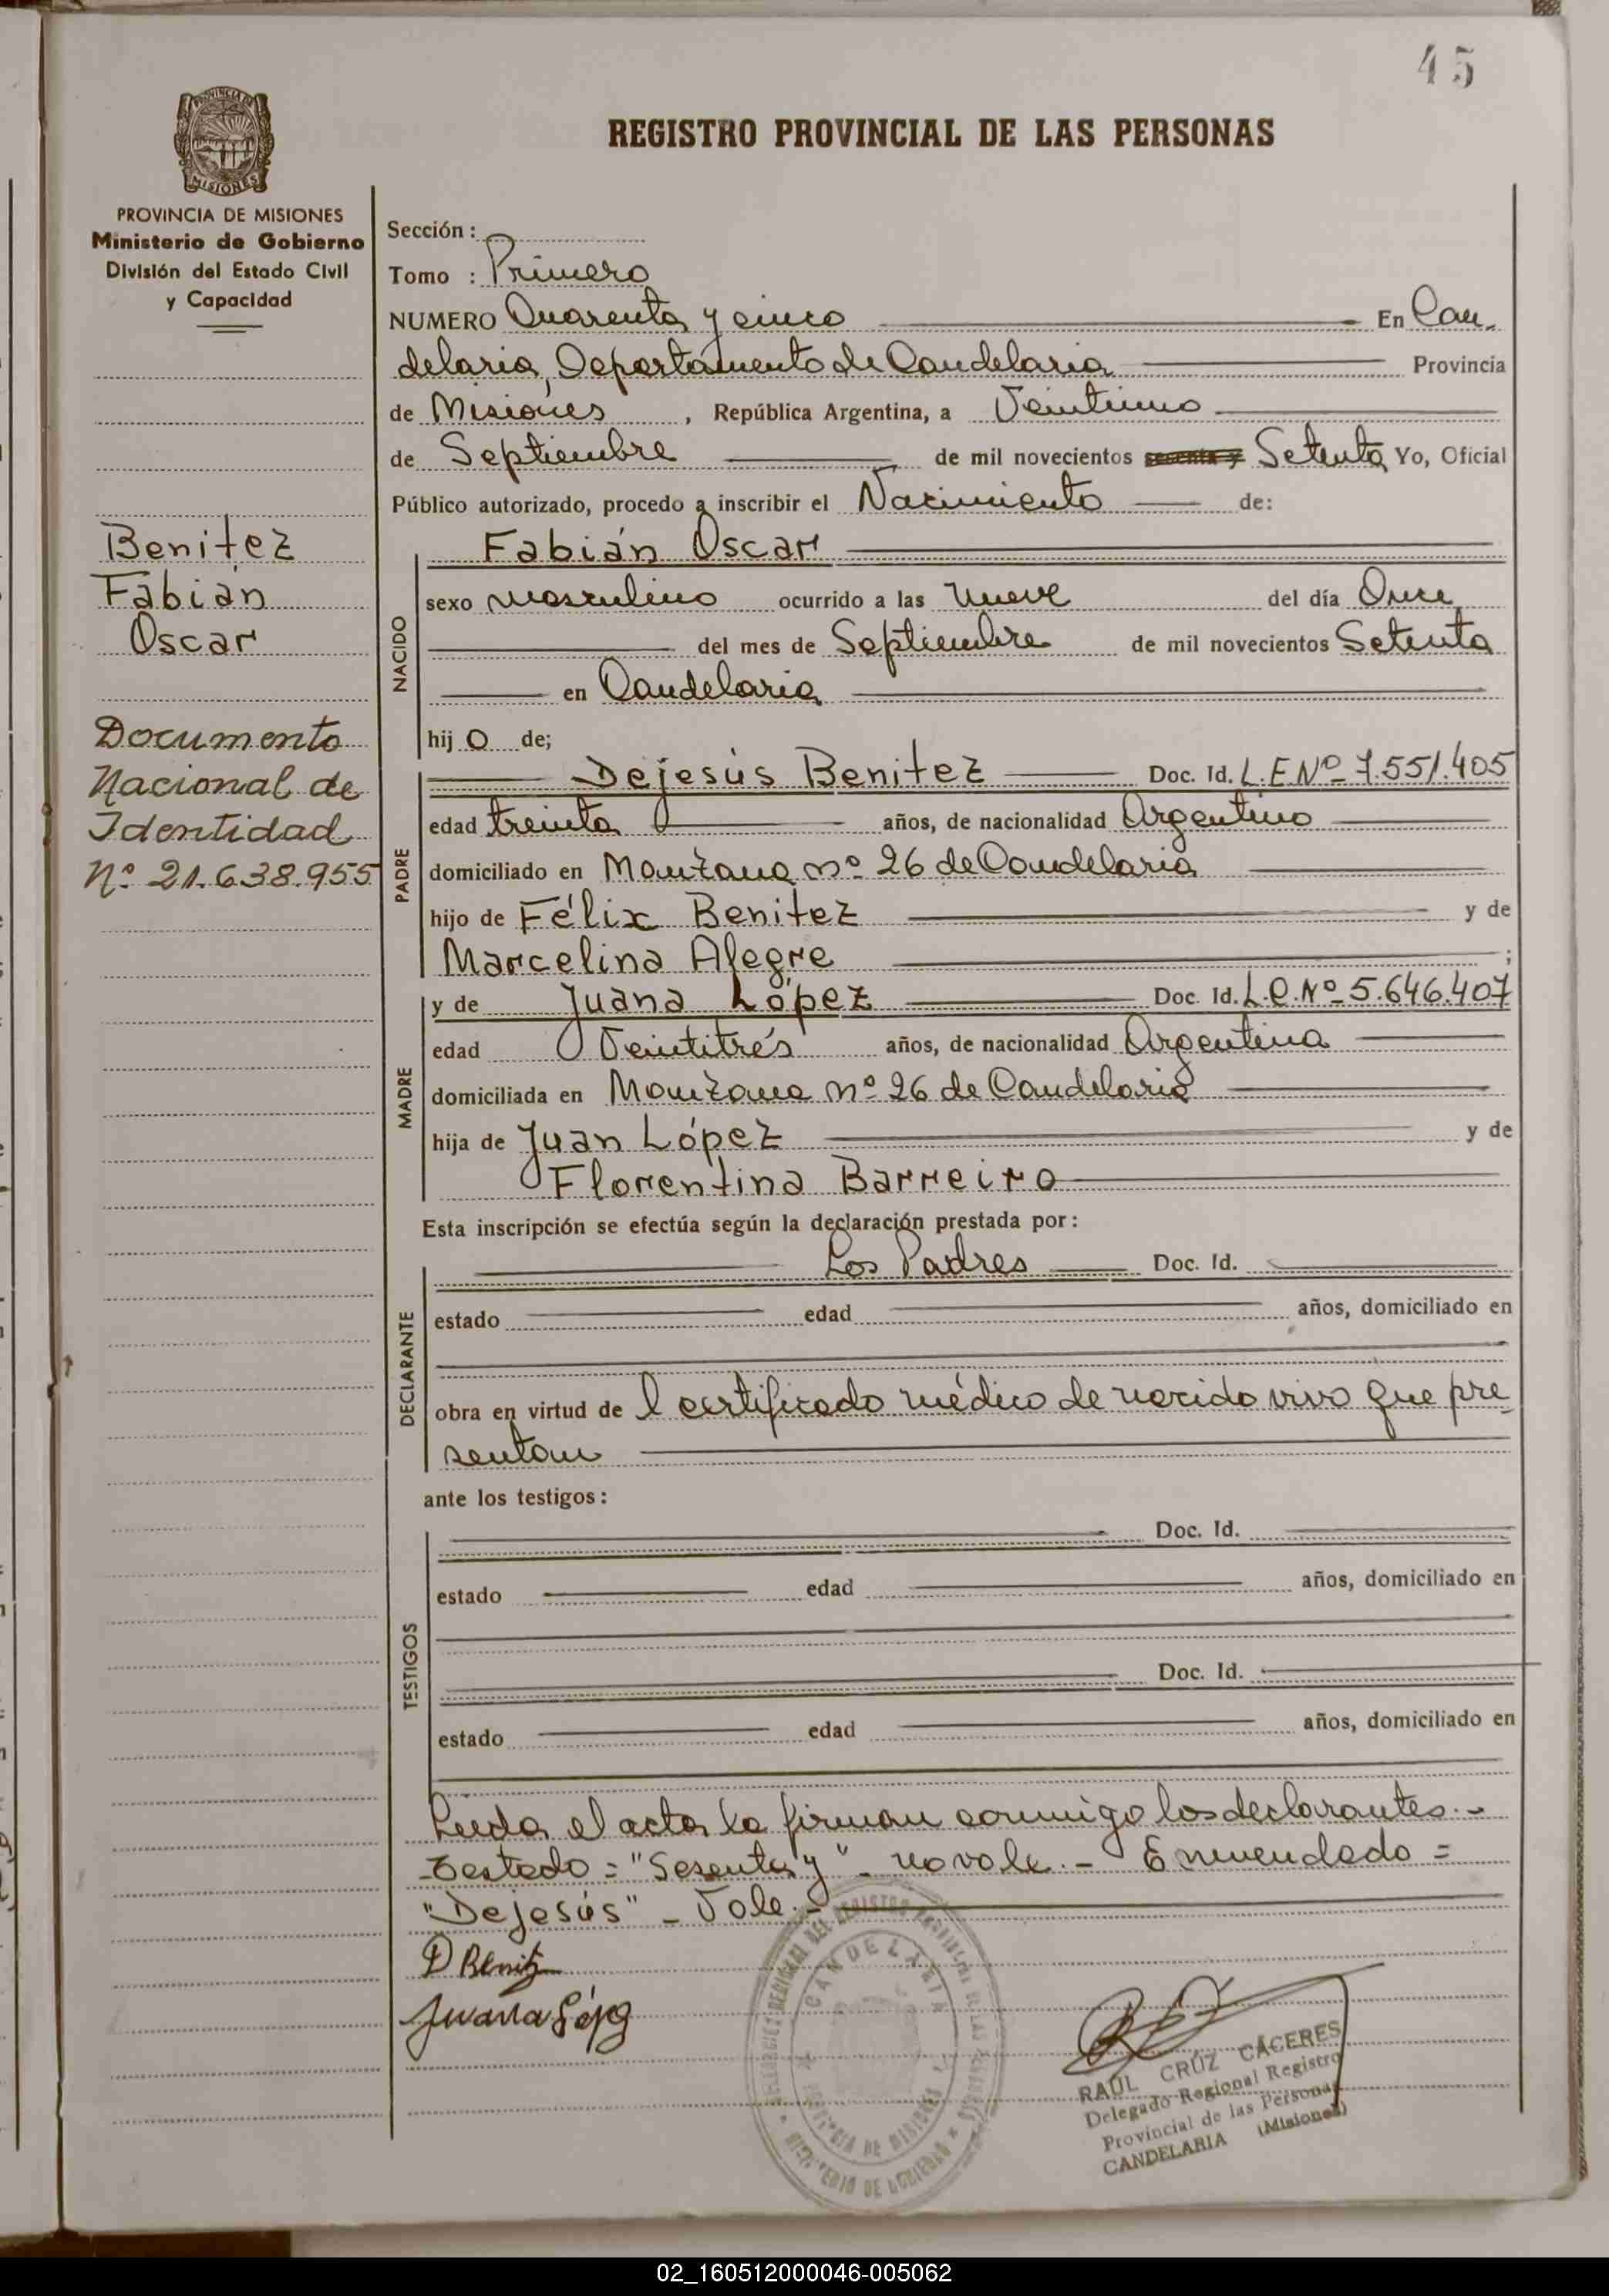 45
PROVINCIA DE
MISIONES
REGISTRO PROVINCIAL DE LAS PERSONAS
PROVINCIA DE MISIONES
Ministerio de Gobierno
División del Estado Civil
y Capacidad
Benitez
Fabián
Oscar
Documento
Nacional de
Identidad
Nº 21.638.955
Sección :
Tomo : Primero
NUMERO Quarenta y cinco En Can-
delaria, Departamento de Candelaria Provincia
de Misiones , República Argentina, a Veintiuno
de Septiembre de mil novecientos sesenta y Setenta Yo, Oficial
Público autorizado, procedo a inscribir el Nacimiento de:
NACIDO
Fabián Oscar
sexo masculino ocurrido a las nueve del día Once
del mes de Septiembre de mil novecientos Setenta
en Candelaria
hij o de;
PADRE
Dejesús Benitez Doc. Id. L.E Nº 7.551.405
edad treinta años, de nacionalidad Argentino
domiciliado en Manzana nº 26 de Candelaria
hijo de Félix Benitez y de
Marcelina Alegre ;
MADRE
y de Juana López Doc. Id. L.C. Nº 5.646.407
edad Veintitrés años, de nacionalidad Argentina
domiciliada en Manzana nº 26 de Candelaria
hija de Juan López y de
Florentina Barreiro
Esta inscripción se efectúa según la declaración prestada por :
DECLARANTE
Los Padres Doc. Id.
estado edad años, domiciliado en
obra en virtud de l certificado médico de nacido vivo que pre
sentan
ante los testigos :
TESTIGOS
Doc. Id.
estado edad años, domiciliado en
Doc. Id.
estado edad años, domiciliado en
Leida el acta la firman conmigo los declarantes.-
Testado = "Sesenta y" - no vale. - Enmendado =
"Dejesús" - Vale.-
D Benitz
Juana López
CANDELARIA
PROVINCIA DE MISIONES
MINISTERIO DE GOBIERNO
RAÚL CRÚZ CÁCERES
Delegado Regional Registro
Provincial de las Personas
CANDELARIA (Misiones)
02_160512000046-005062